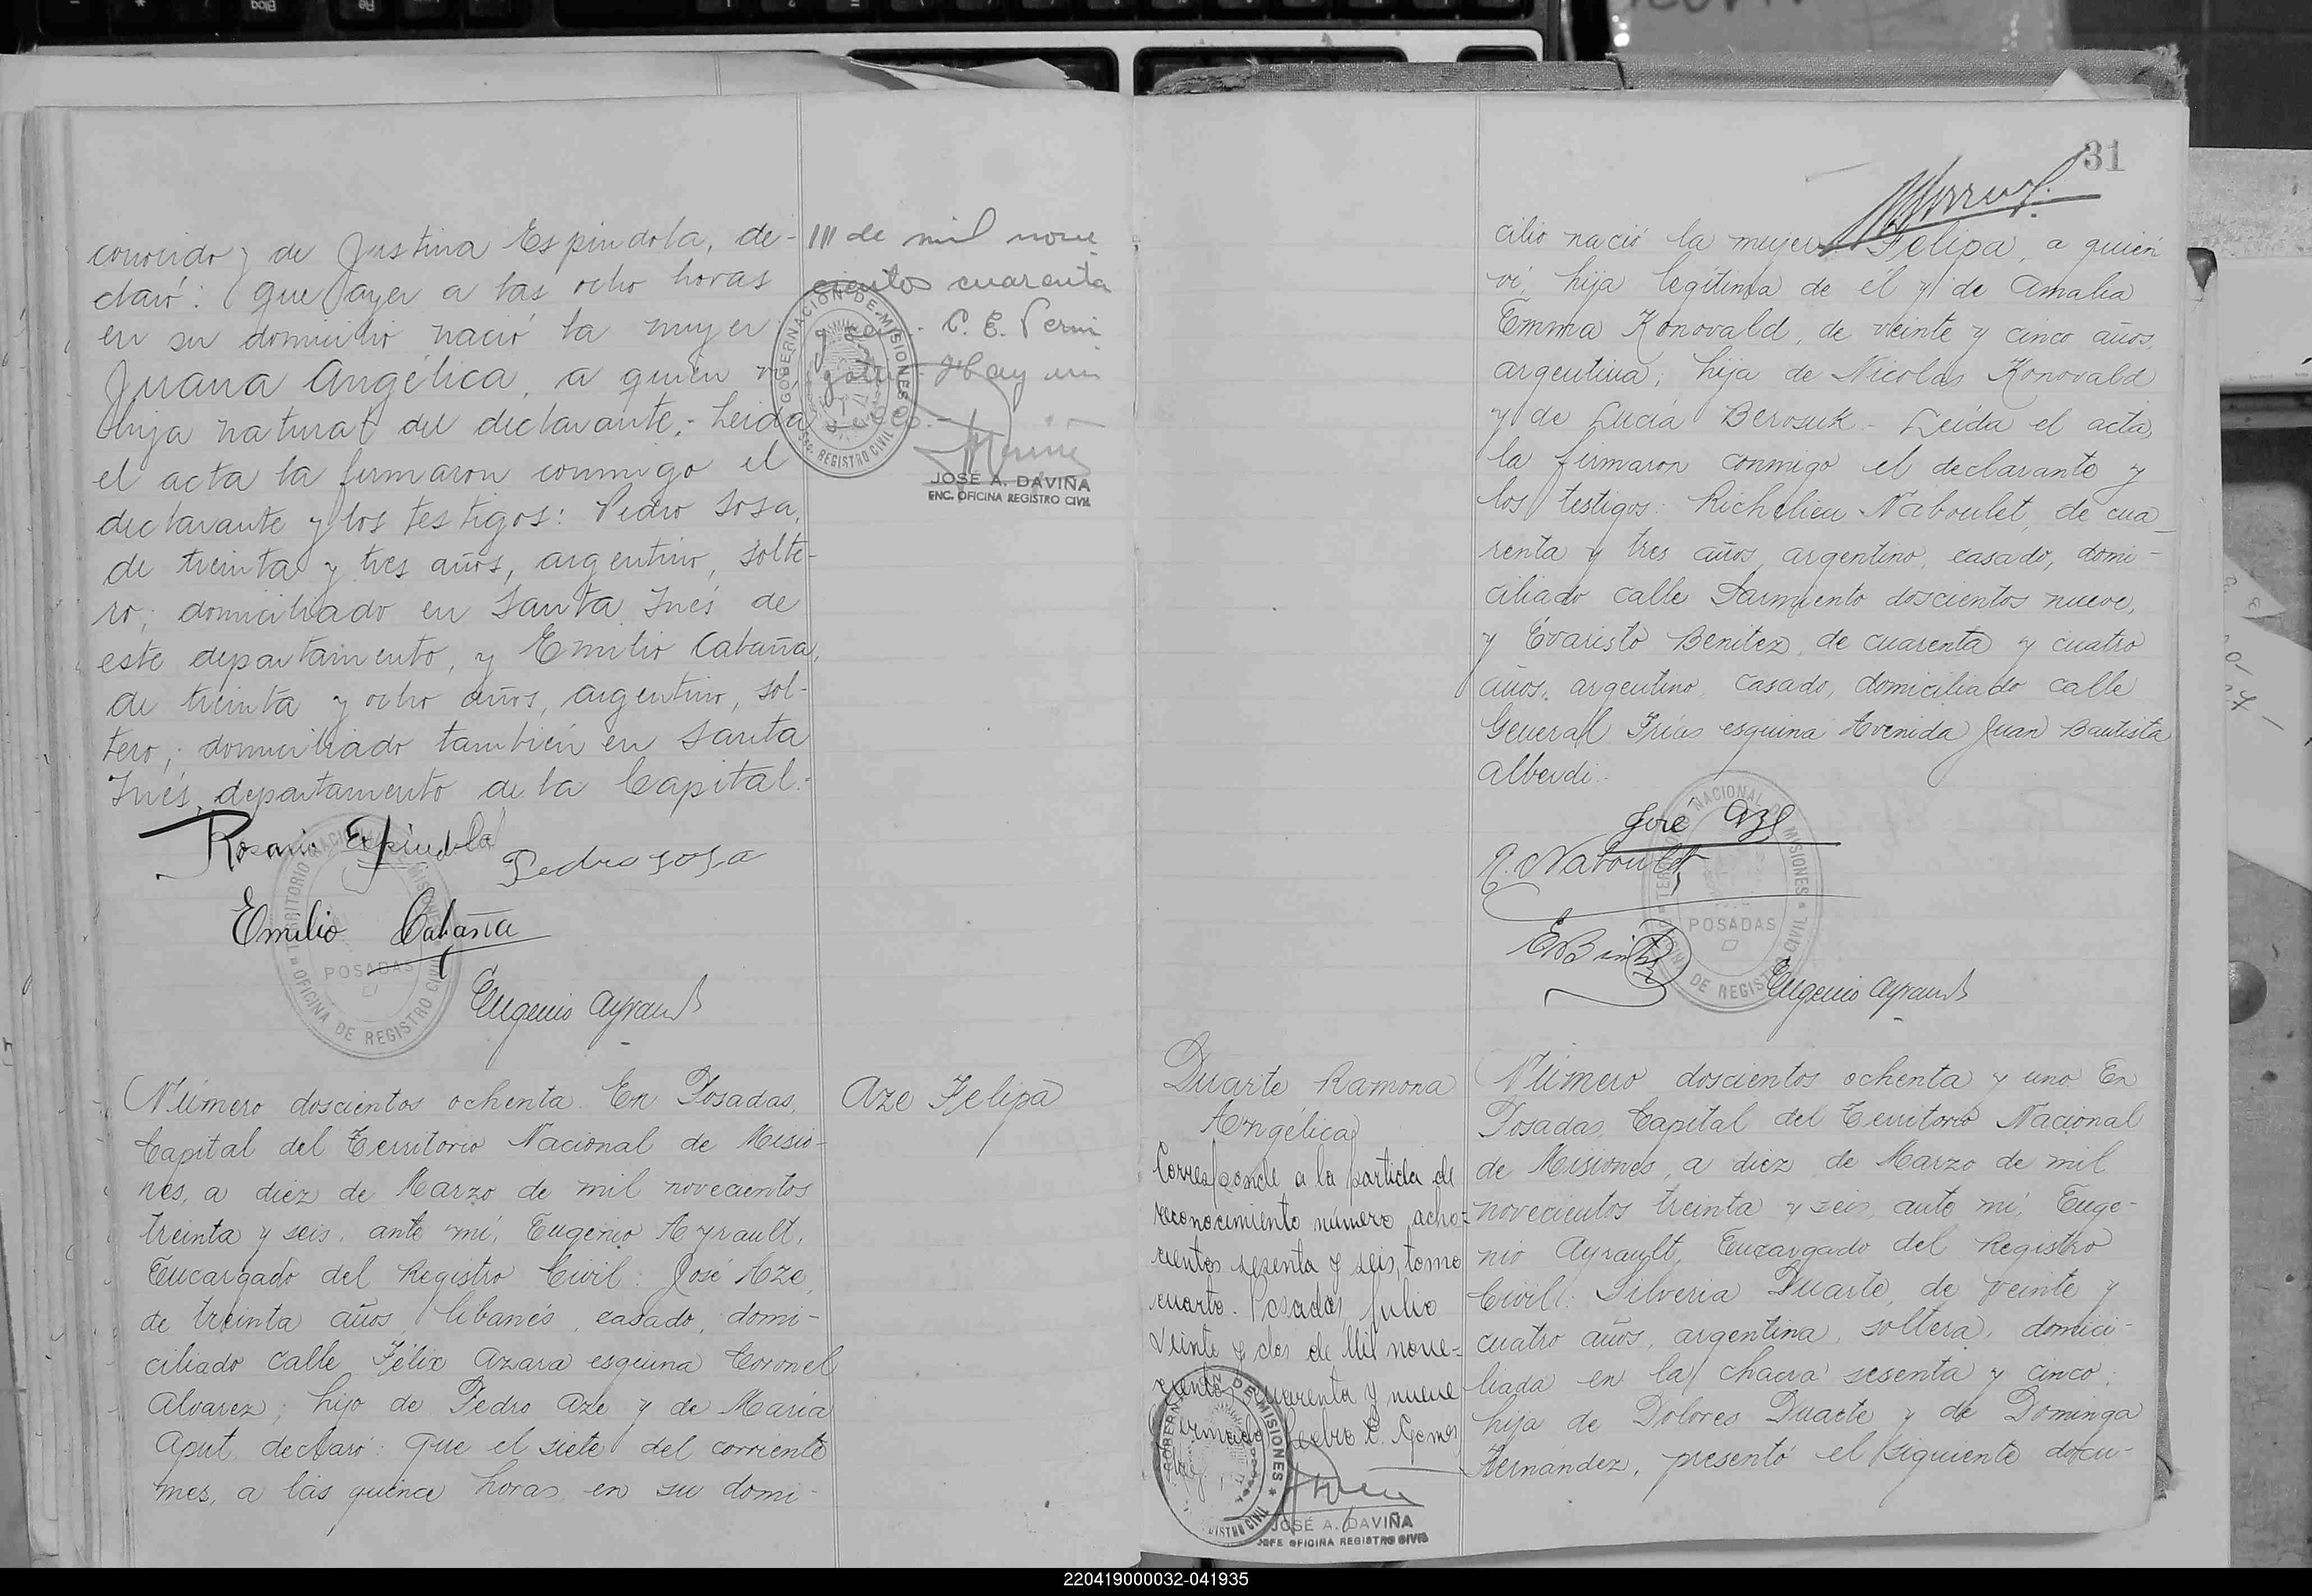 conocido y de Justina Espíndola, de-
claró: Que ayer a las ocho horas
en su domicilio nació la mujer
Juana Angélica, a quien ví
hija natural del declarante.- Leída
el acta la firmaron conmigo el
declarante y los testigos: Pedro Sosa,
de treinta y tres años, argentino, solte-
ro, domiciliado en Santa Inés de
este departamento, y Emilio Cabaña,
de treinta y ocho años, argentino, sol-
tero, domiciliado también en Santa
Inés, departamento de la Capital.-
Rosario Espíndola
Pedro Sosa
Emilio Cabaña
Eugenio Ayrault
TERRITORIO NACIONAL DE MISIONES
POSADAS
OFICINA DE REGISTRO CIVIL
III de mil nove
cientos cuarenta
P. E. Perni
Hay un
sello.-
GOBERNACIÓN DE MISIONES
REGISTRO CIVIL
JOSÉ A. DAVIÑA
ENC. OFICINA REGISTRO CIVIL
Número doscientos ochenta. En Posadas,
Capital del Territorio Nacional de Misio-
nes, a diez de Marzo de mil novecientos
treinta y seis, ante mí, Eugenio Ayrault,
Encargado del Registro Civil: José Aze,
de treinta años, libanés, casado, domi-
ciliado calle Félix Azara esquina Coronel
Alvarez; hijo de Pedro Aze y de María
Aput, declaró: Que el siete del corriente
mes, a las quince horas, en su domi-
Aze Felipa
31
cilio nació la mujer Felipa, a quien
ví, hija legítima de él y de Amalia
Emma Konovald, de veinte y cinco años,
argentina, hija de Nicolás Konovald
y de Lucía Berosuk.- Leída el acta,
la firmaron conmigo el declarante y
los testigos: Richelieu Naboulet, de cua-
renta y tres años, argentino, casado, domi-
ciliado calle Sarmiento doscientos nueve,
y Evaristo Benitez, de cuarenta y cuatro
años, argentino, casado, domiciliado calle
General Frías esquina Avenida Juan Bautista
Alberdi.-
José Aze
R. Naboulet
Eugenio Ayrault
NACIONAL DE MISIONES
POSADAS
OFICINA DE REGISTRO CIVIL
Duarte Ramona
Angélica
Corresponde a la partida de
reconocimiento número ocho-
cientos sesenta y seis, tomo
cuarto. Posadas, Julio
veinte y dos de Mil nove-
cientos cuarenta y nueve
Firmado Pedro C. Gomez
GOBERNACIÓN DE MISIONES
REGISTRO CIVIL
JOSÉ A. DAVIÑA
JEFE OFICINA REGISTRO CIVIL
Número doscientos ochenta y uno. En
Posadas, Capital del Territorio Nacional
de Misiones, a diez de Marzo de mil
novecientos treinta y seis, ante mí, Euge-
nio Ayrault, Encargado del Registro
Civil: Silveria Duarte, de veinte y
cuatro años, argentina, soltera, domici-
liada en la chacra sesenta y cinco,
hija de Dolores Duarte y de Dominga
Hernández, presentó el siguiente docu-
220419000032-041935